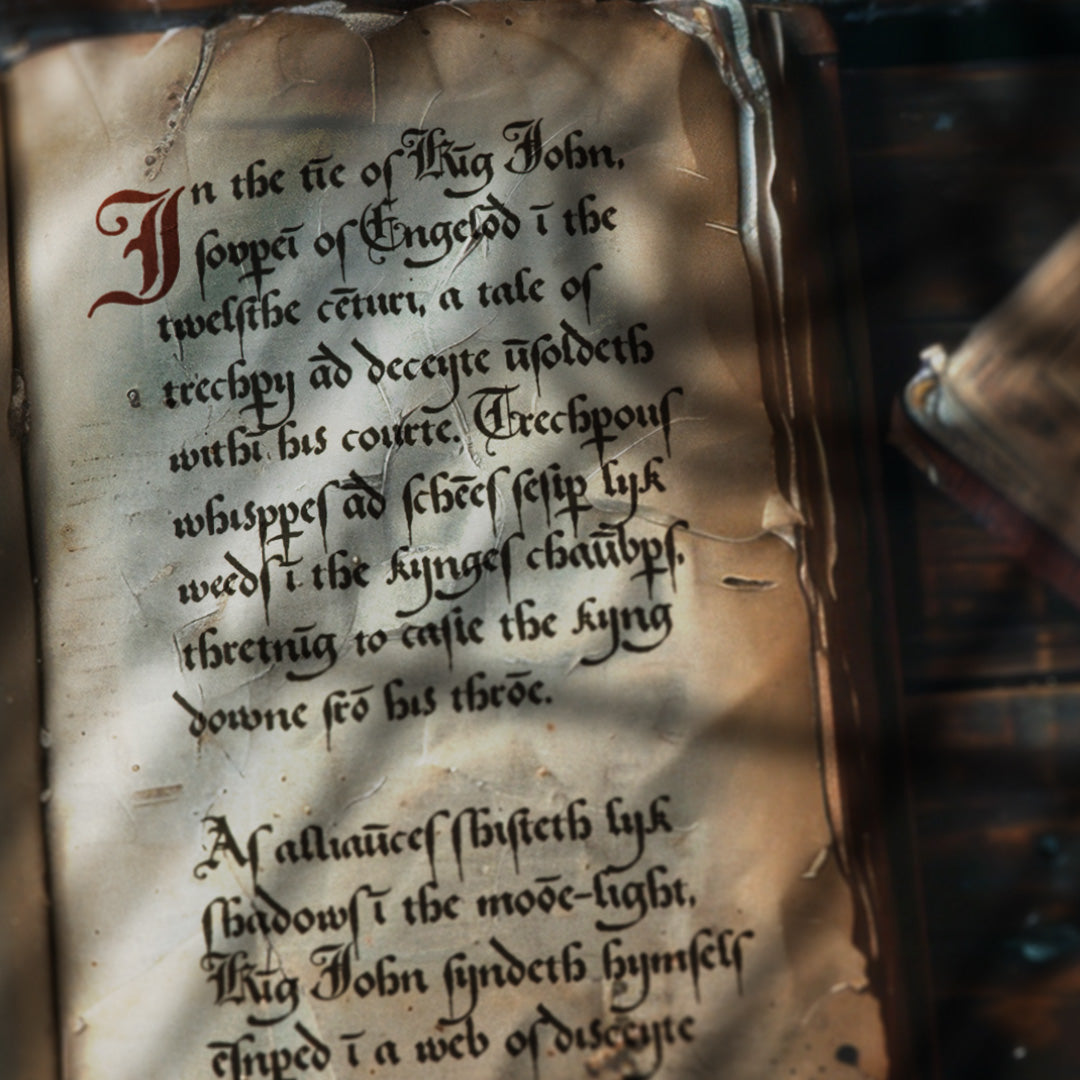 In the tīe of Kīg John,
sovꝑeī of Engelōd ī the
twelfthe cēturi, a tale of
trechꝑy ād deceyte ūfoldeth
withī his courte. Trechꝑous
whisꝑꝑes ād schēes festꝑ lyk
weeds ī the kynges chaūbꝑs,
thretnīg to cāste the kyng
downe frō his thrōe.
As alliaūces shifteth lyk
shadows ī the moōe-light,
Kīg John fyndeth hymself
ēsnꝑed ī a web of disceyte